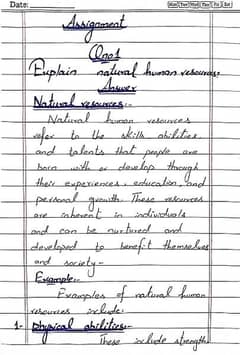 Date:
Mon Tue Wed Thu Fri Sat
Assignment
Qno1
Explain natural human resources.
Answer
Natural resources:-
Natural human resources
refer to the skills abilities
and talents that people are
born with or develop through
their experiences, education, and
personal growth. These resources
are inherent in individuals
and can be nurtured and
developed to benefit themselves
and society-
Example:-
Examples of natural human
resources include:
1- Physical abilities:-
These include strength,